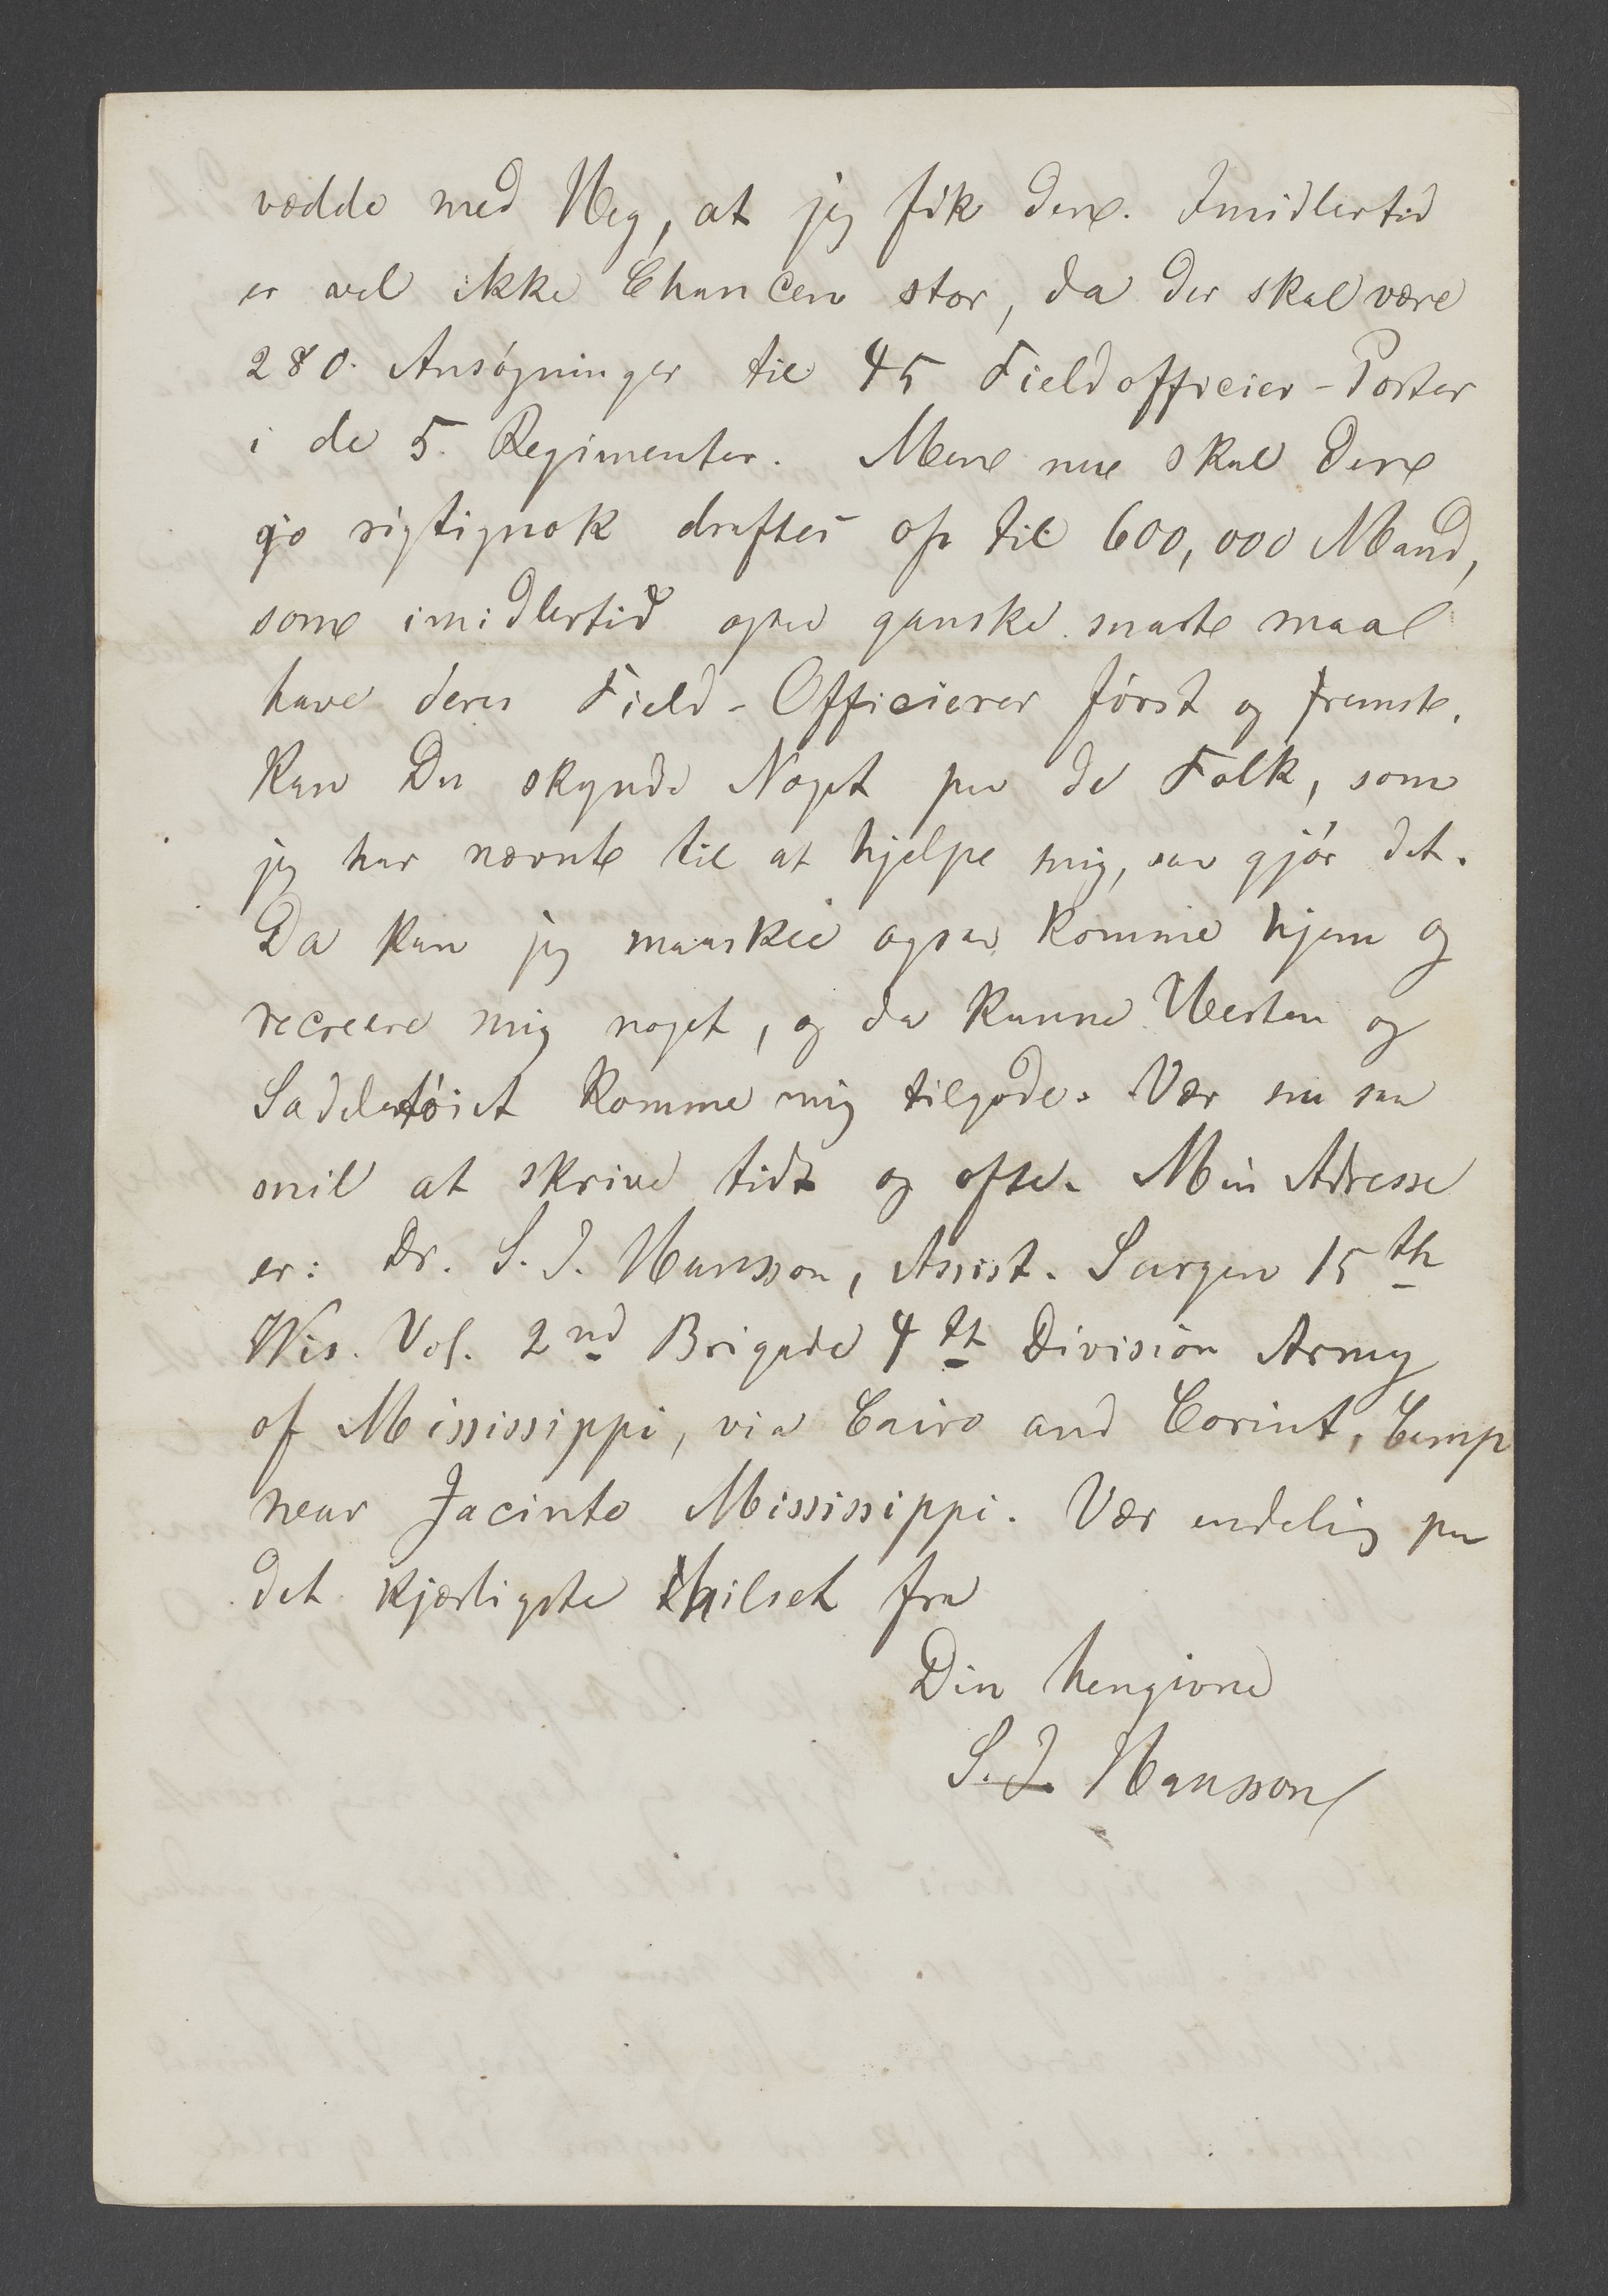 vædde med Heg, at jeg fik den. Imidlertid
er vel ikke Chancen stor, da der skal være
280 Ansøgninger til 45 Fieldofficier-Poster
i de 5 Regimenter. Men nu skal den
jo rigtignok draftes op til 600,000 Mand,
som imidlertid ogsaa ganske snart maa
have deres Field-Officierer først og fremst.
Kan Du skynde Noget paa de Folk, som
jeg har nævnt til at hjelpe mig, saa gjør det.
Da kan jeg maaskee ogsaa komme hjem og
recreere mig noget, og da kunne Hesten og
Sadeltøiet komme mig tilgode. Vær nu saa
snil at skrive tidt og ofte. Min Adresse
er: Dr. S. J. Hansson, Assist. Surgen 15th
Wis. Vol. 2nd Brigade 4th Division Army
of Mississippi, via Cairo and Corint, Camp
near Jacinto Mississippi. Vær endelig paa
det kjærligste hilset fra
Din hengivne
S. J. Hansson